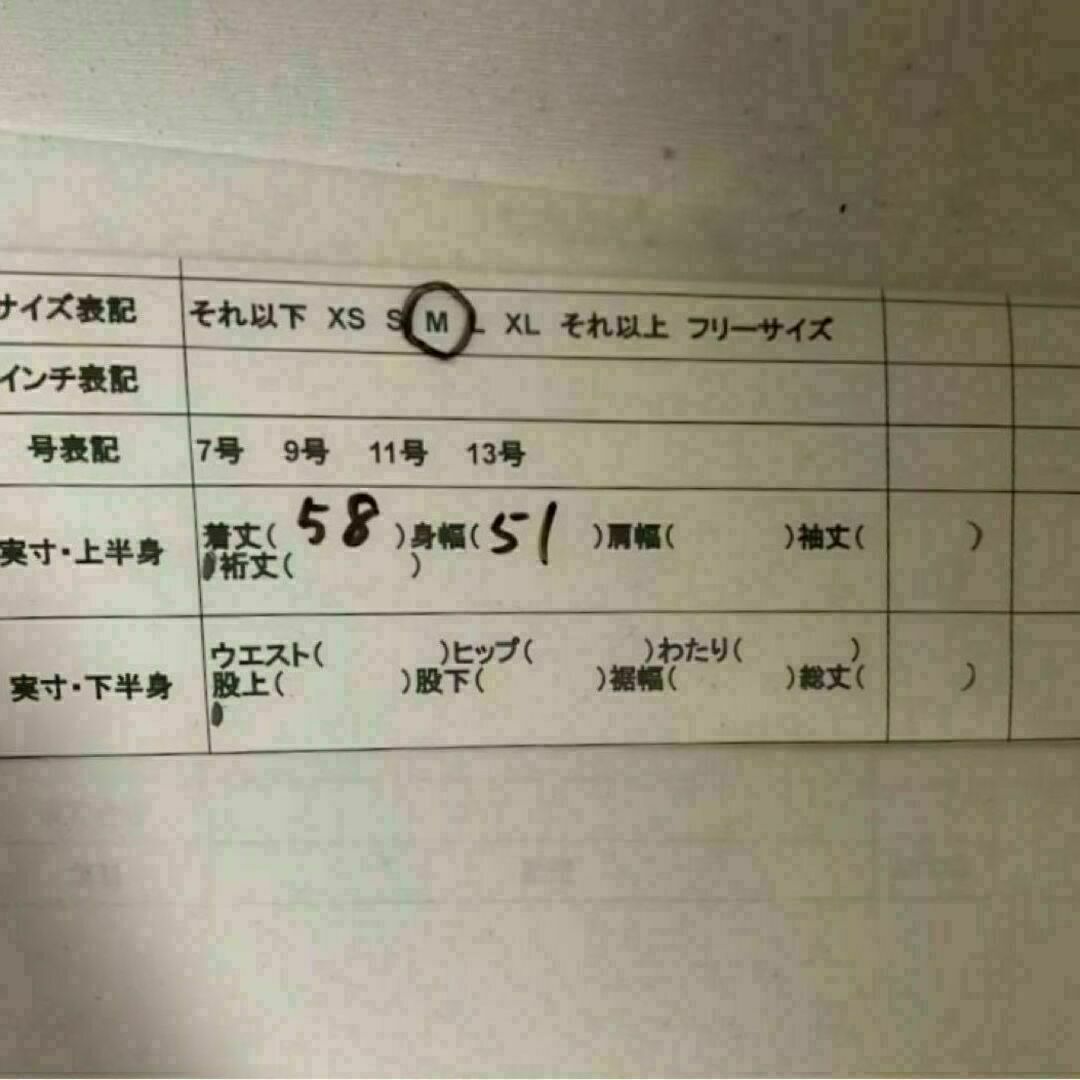 サイズ表記 それ以下 XS S M L XL それ以上 フリーサイズ
インチ表記
号表記 7号 9号 11号 13号
実寸・上半身 着丈( 58 )身幅( 51 )肩幅( )袖丈( )
裄丈( )
実寸・下半身 ウエスト( )ヒップ( )わたり( )
股上( )股下( )裾幅( )総丈( )